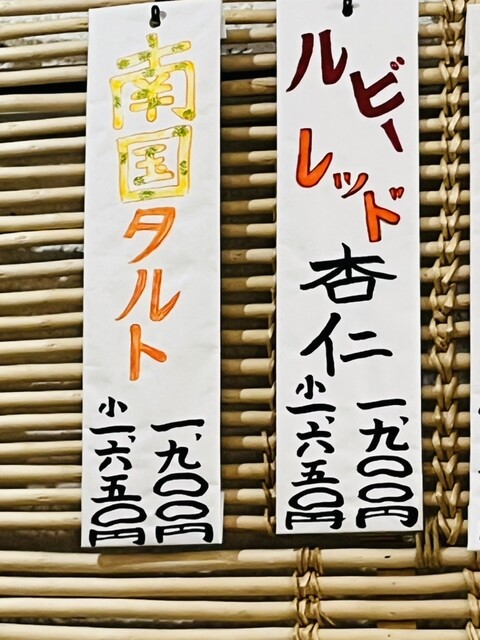 ルビー
レッド
杏仁
一、九〇〇円
小一、六五〇円
南国
タルト
一、九〇〇円
小一、六五〇円